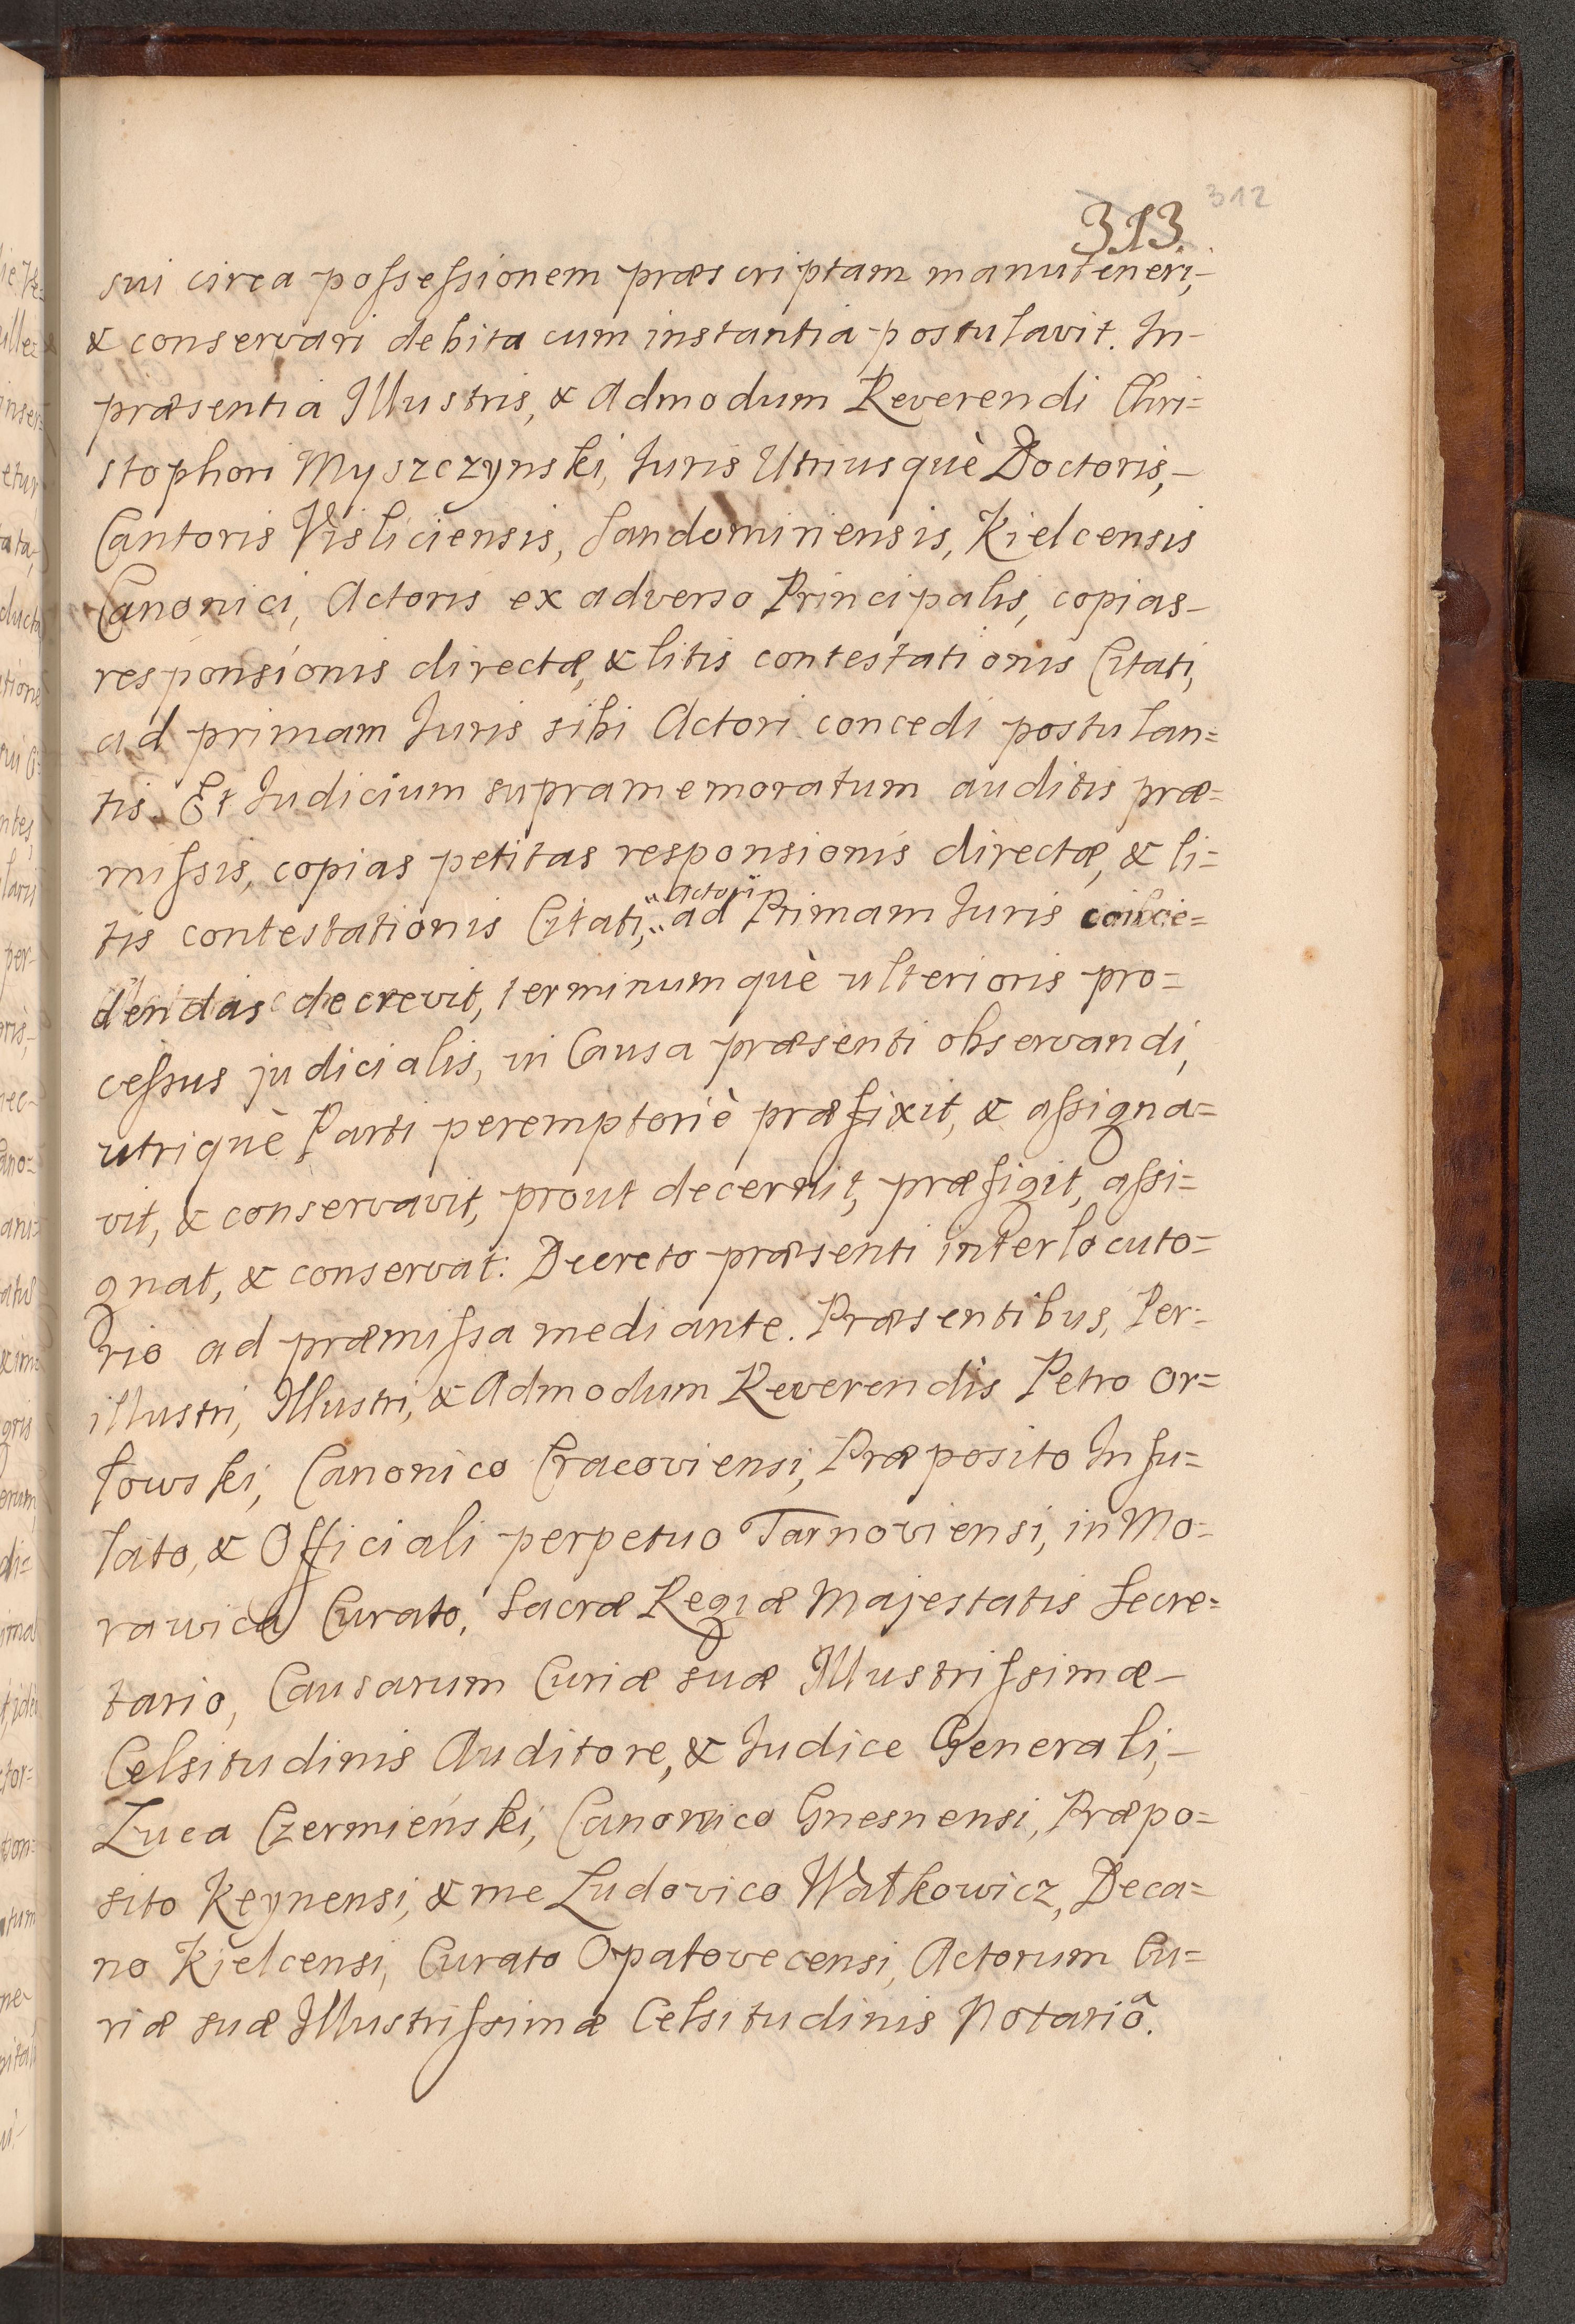 312
313.
sui circa possessionem præscriptam manuteneri,-
& conservari debita cum instantia postulavit. In-
præsentia Illustris, & Admodum Reverendi Chri=
stophori Myszczynski, Juris Utriusquè Doctoris,-
Cantoris Visliciensis, Sandomiriensis, Kielcensis
Canonici, Actoris ex adverso Principalis, copias-
responsionis directæ, & litis contestationis Citati,
ad primam Juris sibi Actori concedi postulan=
tis. Et Judicium supramemoratum auditis præ=
missis, copias petitas responsionis directæ, & li=
"Actori"
tis contestationis Citati," ad Primam Juris conce=
dendas decrevit, terminumquè ulterioris pro=
cessus judicialis, in Causa præsenti observandi,
utriquè Parti peremptoriè præfixit, & assigna=
vit, & conservavit, prout decernit, præfigit, assi=
gnat, & conservat. Decreto præsenti interlocuto=
rio ad præmissa mediante. Præsentibus, Per=
illustri, Illustri, & Admodum Reverendis Petro Or=
łowski, Canonico Cracoviensi, Præposito Infu=
lato, & Officiali perpetuo Tarnoviensi, in Mo=
rawica Curato, Sacræ Regiæ Majestatis Secre=
tario, Causarum Curiæ suæ Illustrissimæ-
Celsitudinis Auditore, & Judice Generali,-
Luca Czermieński, Canonico Gnesnensi, Præpo=
sito Keynensi, & me Ludovico Watkowicz, Deca=
no Kielcensi, Curato Opatovecensi, Actorum Cu=
riæ suæ Illustrissimæ Celsitudinis Notariô.